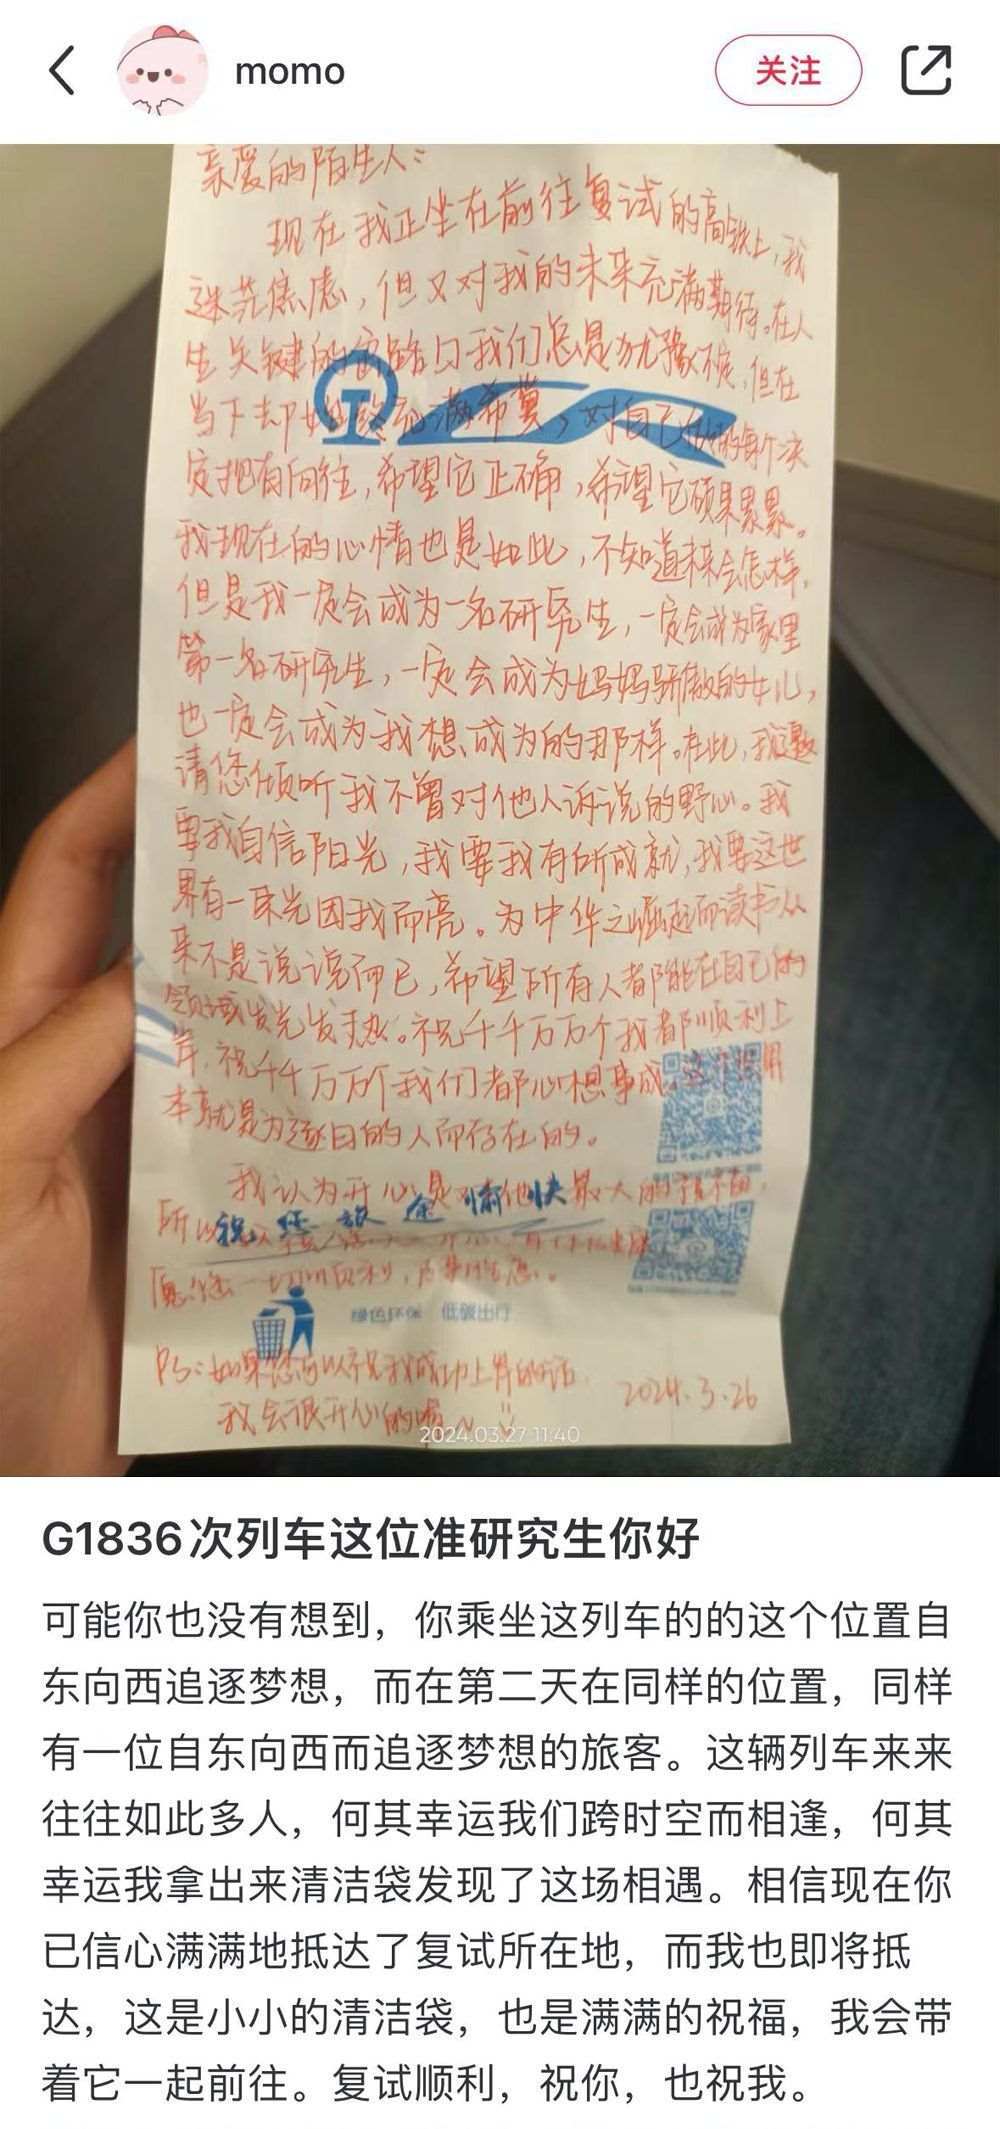 momo
关注
亲爱的陌生人：
现在我正坐在前往复试的高铁上，我
迷茫焦虑，但又对我的未来充满期待。在人
生关键的岔路口我们总是犹豫不决，但在
当下却始终充满希冀，对自己做的每个决
定抱有向往，希望它正确，希望它硕果累累。
我现在的心情也是如此，不知道未来会怎样，
但是我一定会成为一名研究生，一定会成为家里
第一名研究生，一定会成为妈妈骄傲的女儿，
也一定会成为我想成为的那样。在此，我邀
请您倾听我不曾对他人诉说的野心。我
要我自信阳光，我要我有所成就，我要这世
界有一束光因我而亮。为中华之崛起而读书从
来不是说说而已，希望所有人都能在自己的
领域发光发热。祝千千万万个我都顺利上
岸，祝千千万万个我们都心想事成。这个
本就是为逐日的人而存在的。
我认为开心是对其他最大的
所以
祝您旅途愉快
愿您一切顺利，
绿色环保 低碳出行
PS：如果您可以祝我成功上岸的话
我会很开心的喔～
2024.3.26
2024.03.27 11:40
G1836次列车这位准研究生你好
可能你也没有想到，你乘坐这列车的的这个位置自
东向西追逐梦想，而在第二天在同样的位置，同样
有一位自东向西而追逐梦想的旅客。这辆列车来来
往往如此多人，何其幸运我们跨时空而相逢，何其
幸运我拿出来清洁袋发现了这场相遇。相信现在你
已信心满满地抵达了复试所在地，而我也即将抵
达，这是小小的清洁袋，也是满满的祝福，我会带
着它一起前往。复试顺利，祝你，也祝我。